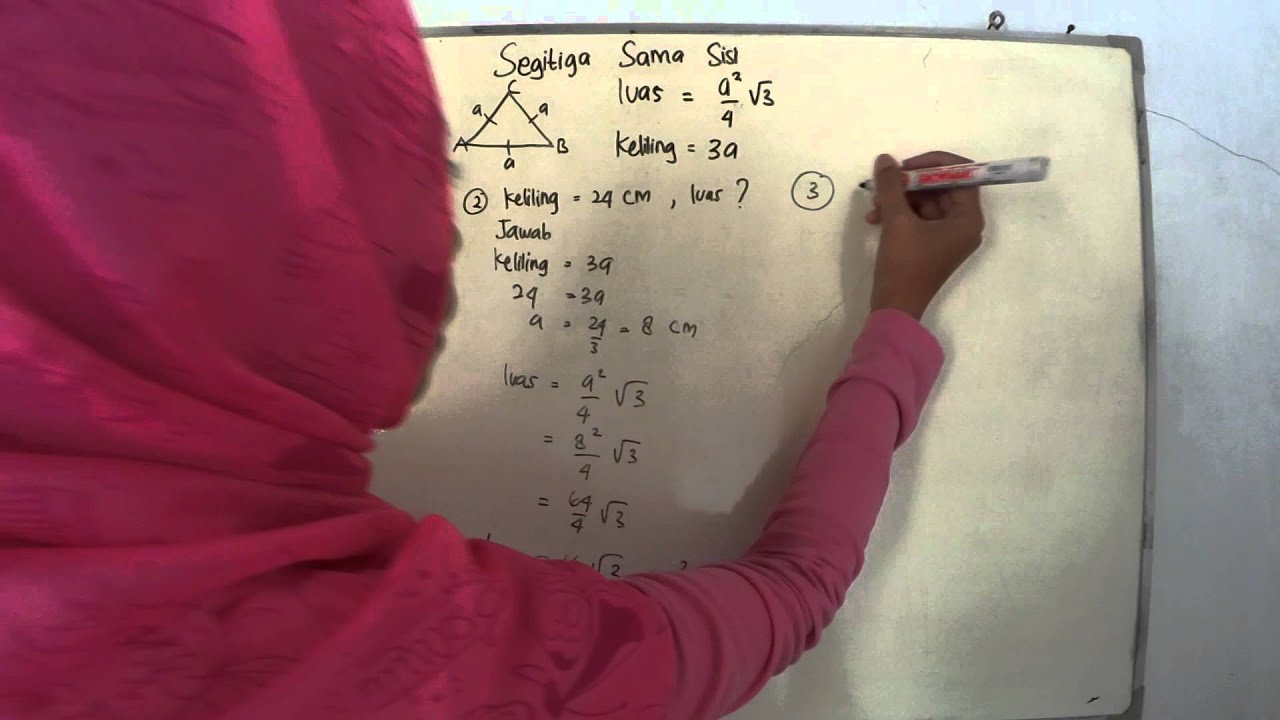 Segitiga Sama Sisi
luas = a²/4 √3
Keliling = 3a
C
a a
A B
a
② Keliling = 24 cm , luas ?
Jawab
Keliling = 3a
24 = 3a
a = 24/3 = 8 cm
luas = a²/4 √3
= 8²/4 √3
= 64/4 √3
√3
③